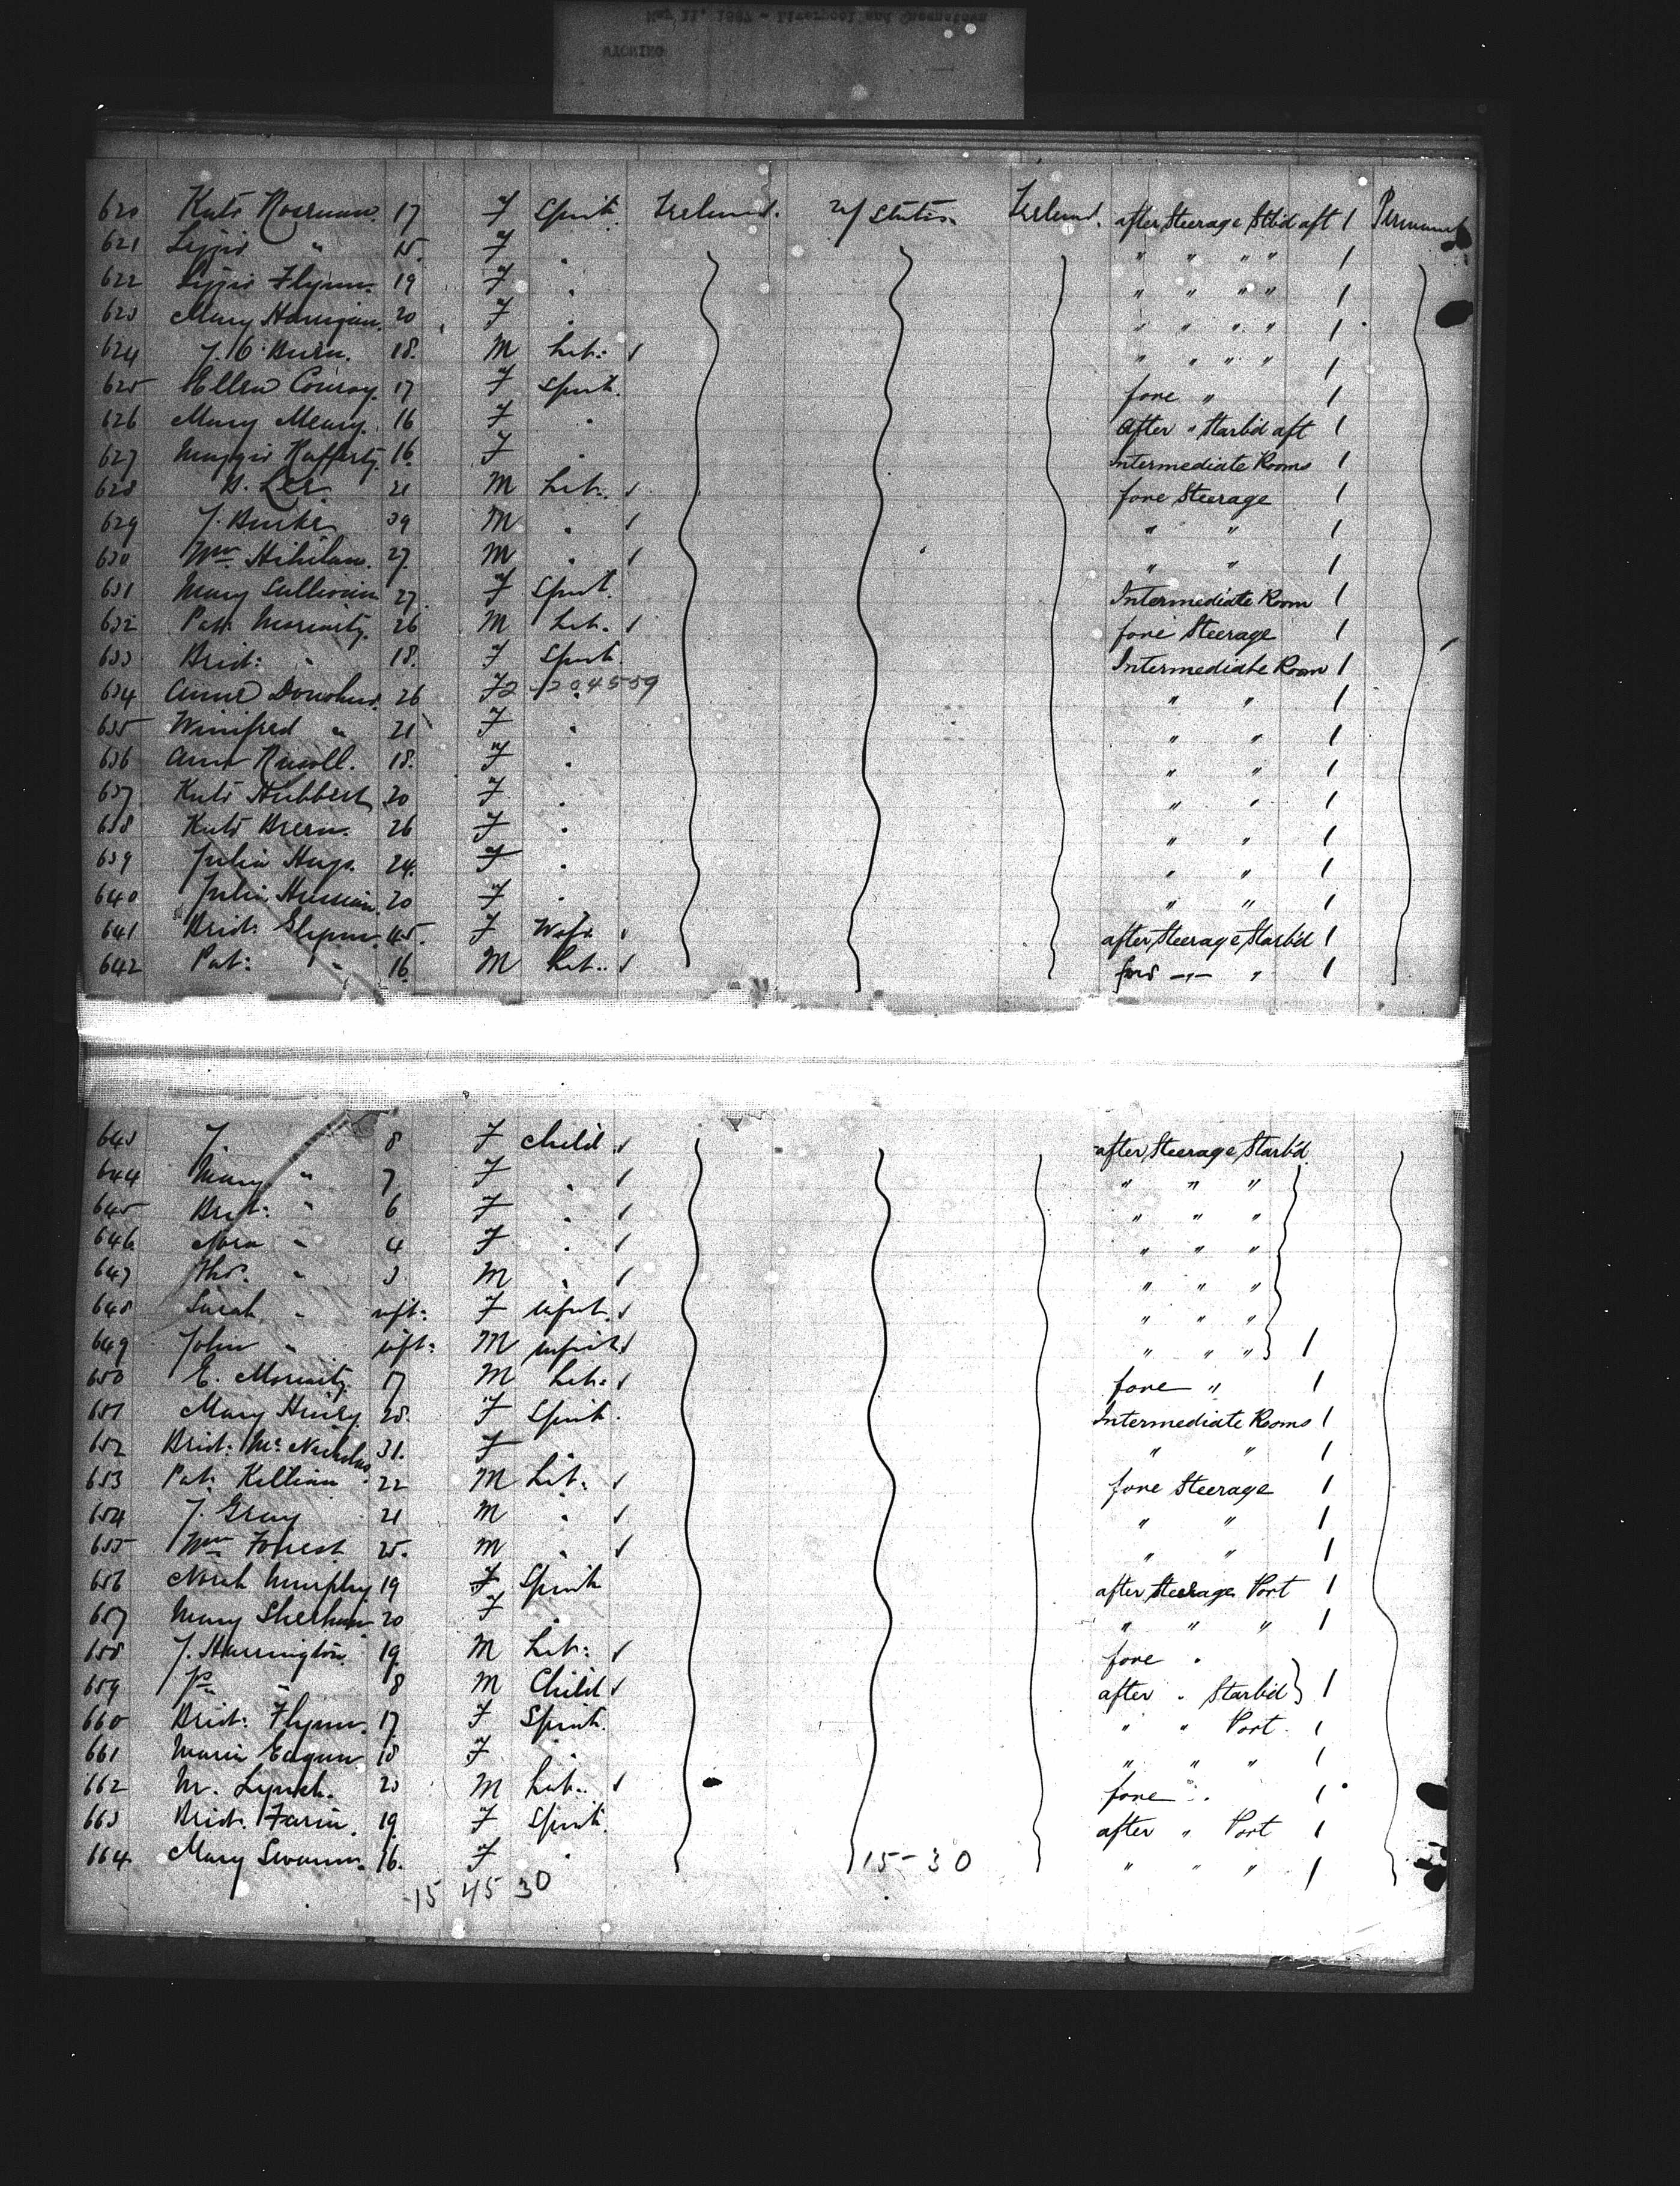 May 11, 1887 - Liverpool and Queenstown
WYOMING
620 Kate 17 F Spinst. Ireland. U/ States Ireland. after Steerage Stb'd aft 1 Permanent
621 Lizzie " 15. F " " " " " 1
622 Lizzie Flynn. 19 F " " " " " 1
623 Mary Harrigan. 20 F " " " " " 1
624 18. M Lab: 1 " " " " 1
625 Ellen Conroy. 17 F Spinst. fore " 1
626 Mary 16 F " After " Starb'd aft 1
627 Maggie Rafferty. 16. F " Intermediate Rooms 1
628 Lee. 21 M Lab: 1 fore Steerage 1
629 J. Burke 39 M " 1 " " 1
630 Wm 27. M " 1 " " 1
631 Mary Sullivan 27. F Spinst. Intermediate Room 1
632 Pat: Moriarity. 26 M Lab. 1 fore Steerage 1
633 Brid: " 18. F Spinst. Intermediate Room 1
634 Annie Donohue. 26 F 2 - 204559 " " 1
635 Winifred " 21 F " " " 1
636 Ann 18. F " " " 1
637 Kate Hubbert 20 F " " " 1
638 Kate 26 F " " " 1
639 Julia Hays. 24. F " " " 1
640 Julia 20 F " " " 1
641 Brid: 45. F Wife 1 after Steerage Starb'd 1
642 Pat: " 16. M Lab.. 1 ford -"- " 1
643 J. 8 F Child 1 after Steerage Starb'd
644 Mary " 7 F " 1 " " "
645 Brid: " 6 F " 1 " " "
646 Nora " 4 F " 1 " " "
647 Thos. " 3 M " 1 " " "
648 Sarah " inft: F infant. 1 " " "
649 John " inft: M infant 1 " " " 1
650 E. Moriarity. 17 M Lab: 1 fore " 1
651 Mary 28. F Spinst. Intermediate Rooms 1
652 Brid: McNicholas 31. F " " 1
653 Pat: Killian 22 M Lab: 1 fore Steerage 1
654 J. Gray 21 M " 1 " " 1
655 Wm Forrest 25. M " 1 " " 1
656 Norah Murphy 19 F Spinst after Steerage Port 1
657 Mary 20 F " " " " 1
658 J. Harrington. 19. M Lab: 1 fore "
659 " 8 M Child 1 after " Starb'd 1
660 Brid: Flynn. 17 F Spinst. " " Port. 1
661 Maria Eagan 18 F " " " " 1
662 M. Lynch. 20 M Lab.. 1 fore " 1
663 Brid. 19. F Spinst. after " Port 1
664 Mary 16. F " " " " 1
15-30
-15 45 30